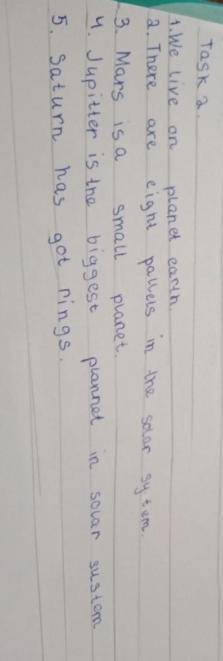 Task 2.
1. We live on planet earth.
2. There are eight pallets in the solar sytem.
3. Mars is a small planet.
4. Jupitter is the biggest plannet in solar sustem
5. Saturn has got rings.